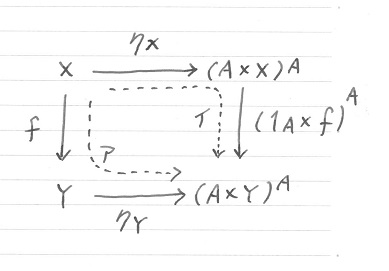 ηX
X (A×X)^A
f T (1A×f)^A
P
Y (A×Y)^A
ηY